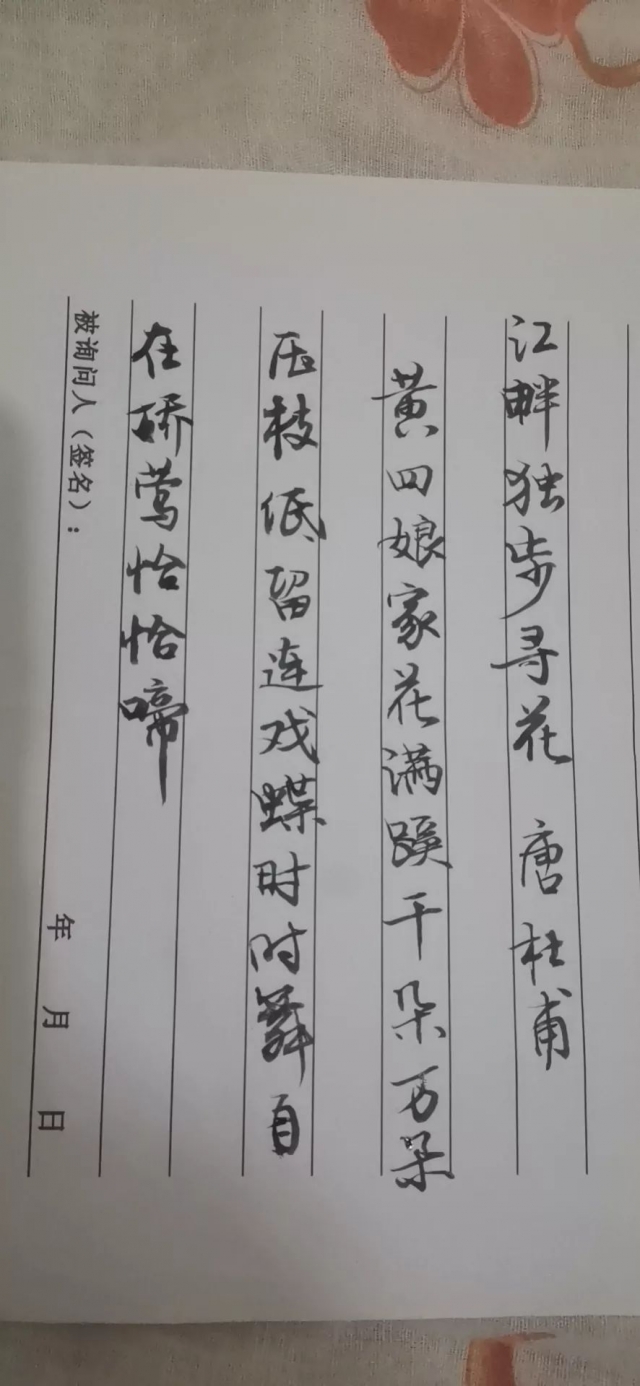 江畔独步寻花 唐 杜甫
黄四娘家花满蹊千朵万朵
压枝低留连戏蝶时时舞自
在娇莺恰恰啼
被询问人（签名）： 年 月 日